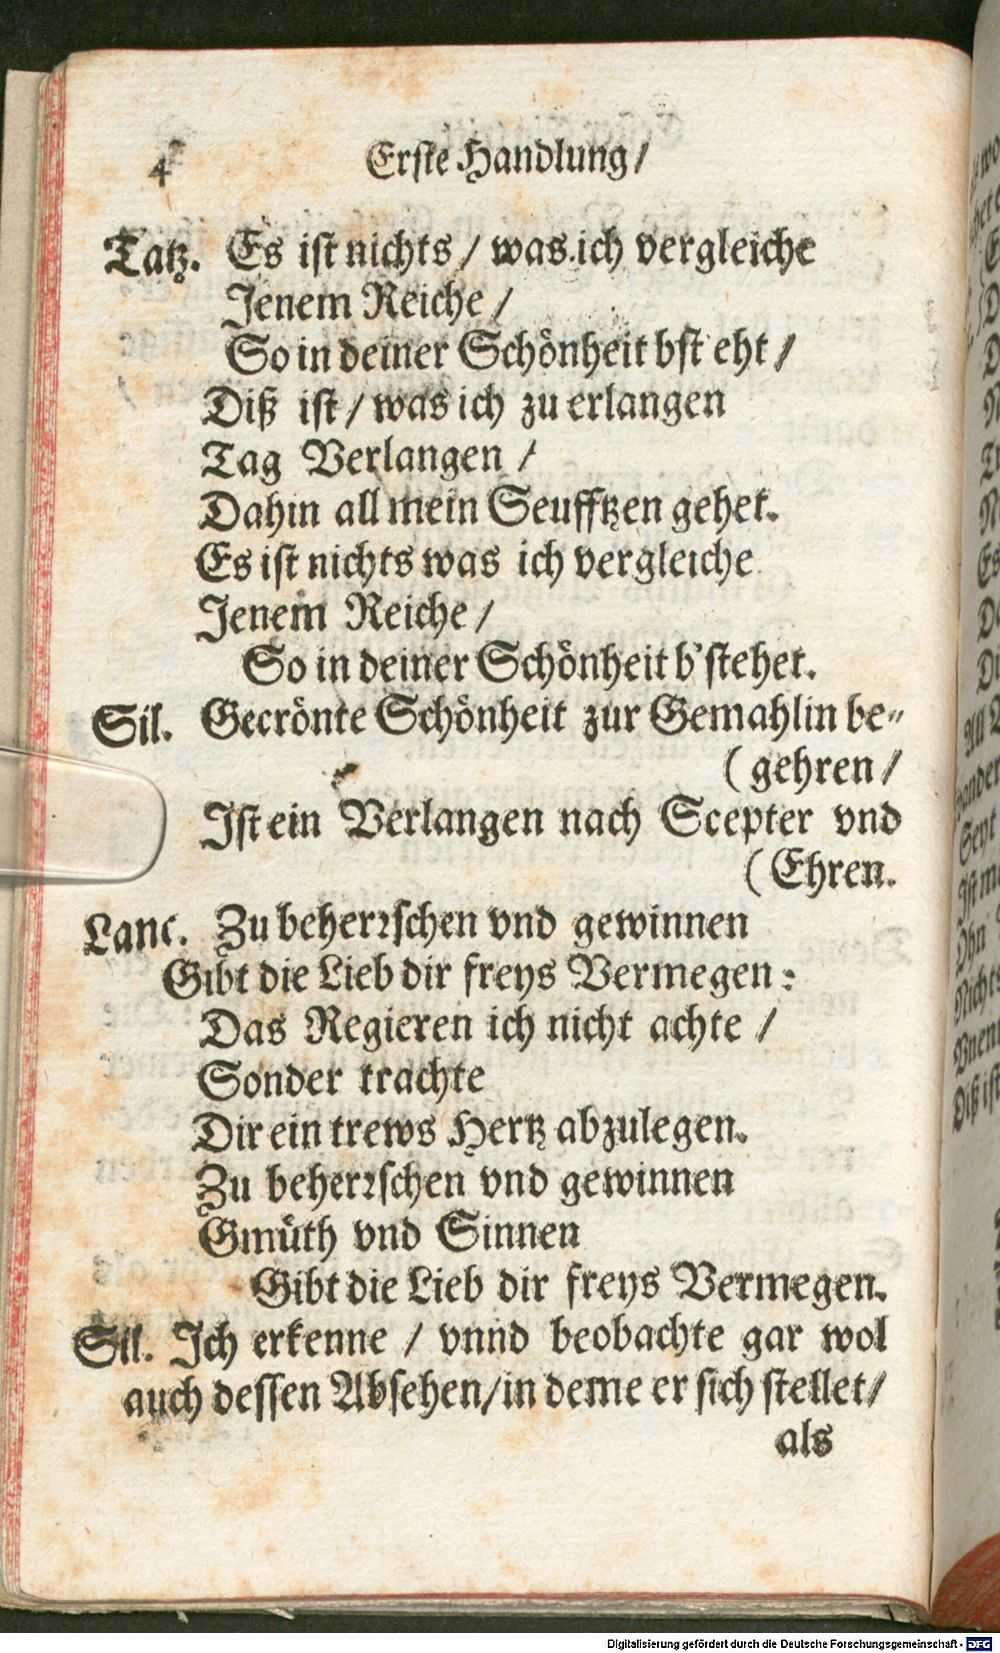 4
Erste Handlung/
Tatz. Es ist nichts / was ich vergleiche
Jenem Reiche /
So in deiner Schönheit bst eht /
Diß ist / was ich zu erlangen
Tag Verlangen /
Dahin all mein Seufftzen gehet.
Es ist nichts was ich vergleiche
Jenem Reiche /
So in deiner Schönheit b'stehet.
Sil. Gecrönte Schönheit zur Gemahlin be-
(gehren /
Ist ein Verlangen nach Scepter vnd
(Ehren.
Lanc. Zu beherrschen vnd gewinnen
Gibt die Lieb dir freys Vermegen:
Das Regieren ich nicht achte /
Sonder trachte
Dir ein trews Hertz abzulegen.
Zu beherrschen vnd gewinnen
Gmüth vnd Sinnen
Gibt die Lieb dir freys Vermegen.
Sil. Ich erkenne / vnnd beobachte gar wol
auch dessen Absehen/in deme er sich stellet/
als
Digitalisierung gefördert durch die Deutsche Forschungsgemeinschaft - DFG